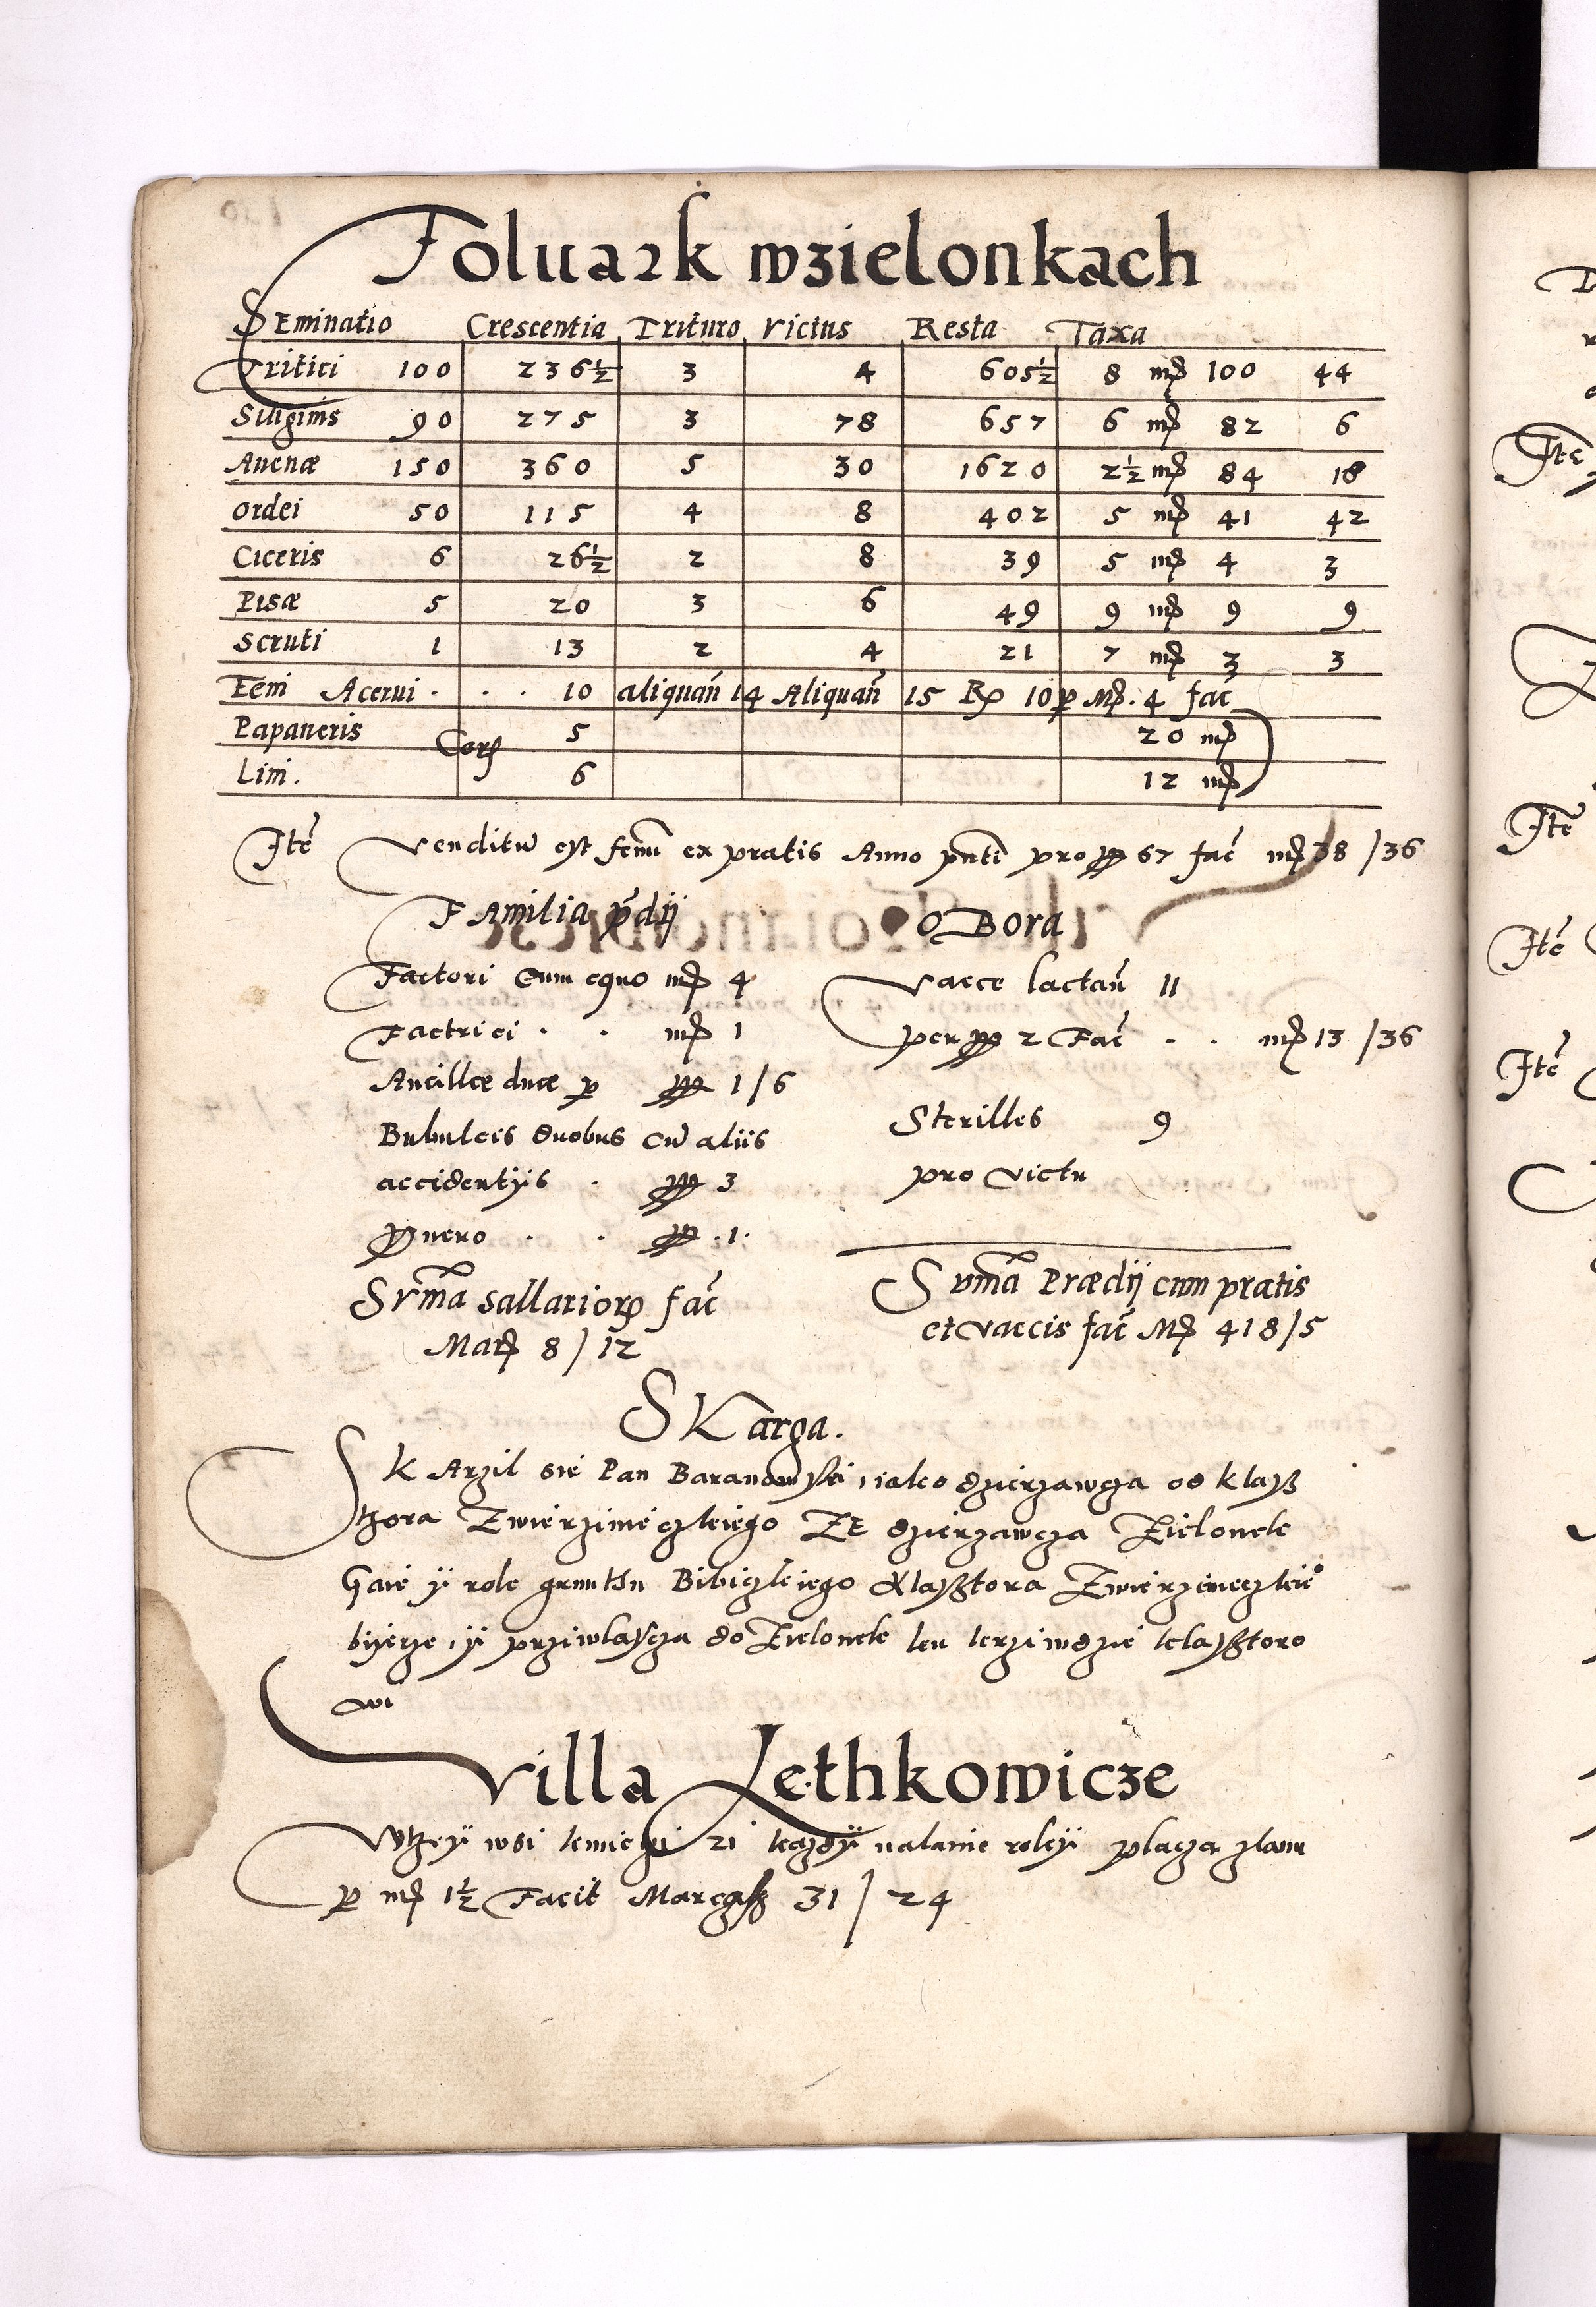 Foluark wzielonkach
SEminatio Crescentia Trituro Victus Resta Taxa
Tritici 100 236½ 3 4 605½ 8 mṛ 100 44
Siliginis 90 275 3 78 657 6 mṛ 82 6
Auenæ 150 360 5 30 1620 2½ mṛ 84 18
ordei 50 115 4 8 402 5 mṛ 41 42
Ciceris 6 26½ 2 8 39 5 mṛ 4 3
Pisæ 5 20 3 6 49 9 mṛ 9 9
Scruti 1 13 2 4 21 7 mṛ 3 3
Feni Acerui . . . 10 aliquañ 14 Aliquañ 15 10 p Mṛ. 4 fac
Papaueris 5 20 mṛ
Lini . 6 12 mṛ
Itē Venditū est fenū ex pratis Anno pñti pro 67 fac̃ mṛ 38 / 36
FAmilia p̃dij
Factori Cum equo mṛ 4
Factrici . . mṛ 1
Ancillæ duæ p 1 / 6
Bubulcis duobus cū aliis
accidentÿs . 3
puero . . . 1 .
SVm̃a sallariorꝝ fac̃
Marṛ 8 / 12
OBora
Vacce lactañ 11
per 2 Fac̃ . . mṛ 13 / 36
Sterilles 9
pro victu
Sum̃a Prædij cum pratis
et vaccis fac̃ Mṛ 418 / 5
SKarga.
SKArzil sie Pan iako dzierzawcza od klaß
tzora Zwierzinieczkiego ZE dzierzawcza Zielonek
Gaie ÿ role grunthu Bibiczkiego Klaßtora Zwierzineczkie°
bierze, ÿ przÿwlascza do Zielonek ku krziwdzie klaßtoro
wi
Villa Lethkowicze
Wtzeÿ wsi kmieczi 21 kazdÿ nalanie roleÿ placza z lanu
p mṛ 1½ Facit 31 / 24